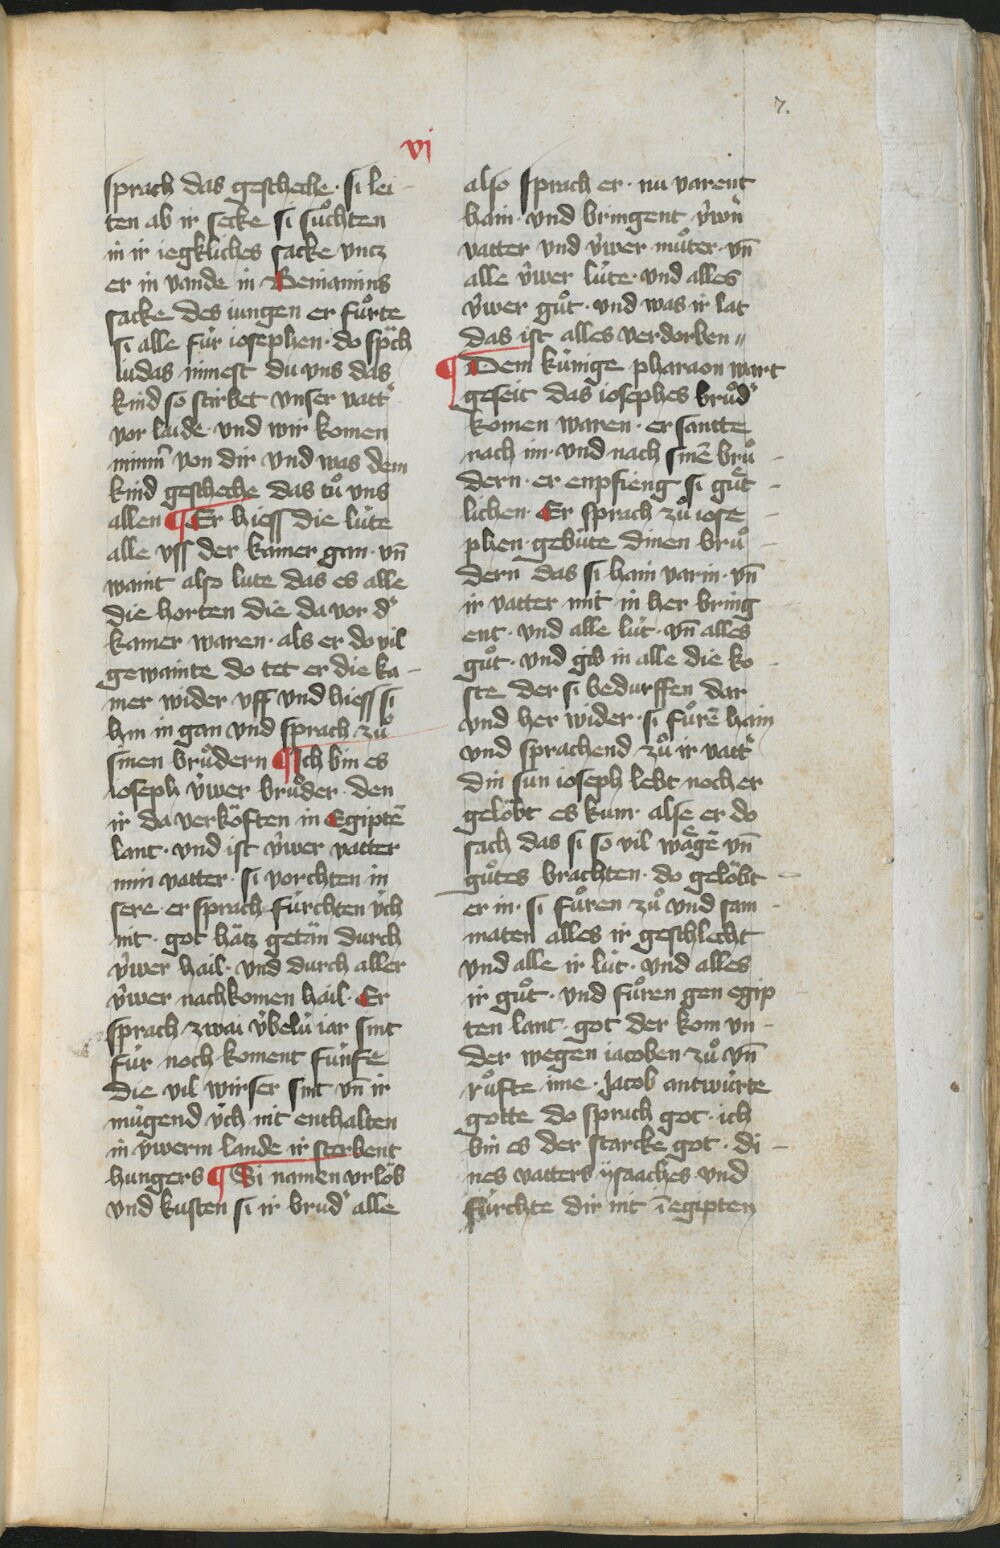 7.
vj
sprach das gescheche · si lei-
ten ab ir secke si sůchten
in ir iegkliches sacke vncz
er in vande in Beniamins
sacke des iungen er fůrte
si alle für iosephen · do sp̈ch
iudas nimest du vns das
kind so stirbet vnser vatt̉
vor laide · vnd wir komen
nim̄ von dir vnd was dem
kind gescheche das tů vns
allen ¶ Er hiess die lúte
alle vss der kamer gan · vn̄
waint also lute das es alle
die horten die da vor d̉
kamer waren · als er do vil
gewainte do tet er die ka-
mer wider vff vnd hiess si
hin in gan vnd sprach zů
sinen brůdern ¶ Ich bin es
ioseph v́wer brůder · den
ir da verköften in Egiptē
lant · vnd ist v́wer vatter
min vatter · si vorchten in
sere · er sprach fúrchten v́ch
nit · got hätz getän durch
v́wer hail · vnd durch aller
v́wer nachkomen hail · Er
sprach zwai v́belú iar sint
fúr noch koment fúnfe
die vil wirser sint vn̄ ir
múgend v́ch nit enthalten
in v́werm lande ir sterbent
hungers ¶ Si namen vrlöb
vnd kusten si ir brud̉ alle
also sprach er · nu varent
hain · vnd bringent v́wn̉
vatter vnd v́wer můter · vn̄
alle v́wer lúte · vnd alles
v́wer gůt · vnd was ir lat
das ist alles verdorben //
¶ Dem kúnige pharaon wart
geseit das iosephes brůd̉
komen waren · er santte
nach im · vnd nach sinē brů-
dern · er enpfieng si gůt-
lichen · Er sprach zů iose-
phen · gebúte dinen brů-
dern das si hain varin · vn̄
ir vatter mit in her bring
ent · vnd alle lút · vn̄ alles
gůt · vnd gib in alle die ko-
ste der si bedurffen dar
vnd her wider · si fůrē hain
vnd sprachend zů ir vatt̉
din sun ioseph lebt noch er
gelöbt es kum · alse er do
sach das si so vil wägē vn̄
gůtes brachten · do gelöbt
er in · si fůren zů vnd sam-
maten alles ir geschlecht
vnd alle ir lút · vnd alles
ir gůt · vnd fůren gen egip-
ten lant · got der kom vn-
der wegen iacoben zů vn̄
růfte ime · Jacob antwúrte
gotte do sprach got · ich
bin es der starcke got · di-
nes vatters ÿsaaches vnd
fúrchte dir nit ī egipten